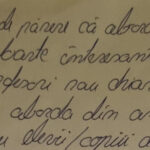 de părere că aborda
foarte interesant
profesori sau chiar
aborda din
elevii/copiii a